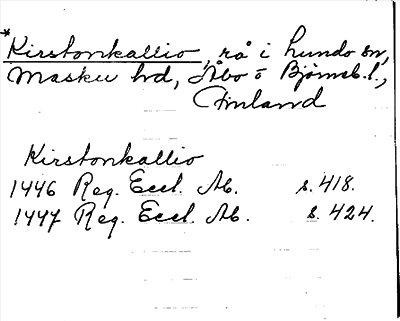 *Kirstonkallio, rå i Lundo sn,
Masku hd, Åbo o Björneb. l.,
Finland
Kirstonkallio
1446 Reg. Eccl. Ab. s. 418.
1447 Reg. Eccl. Ab. s. 424.